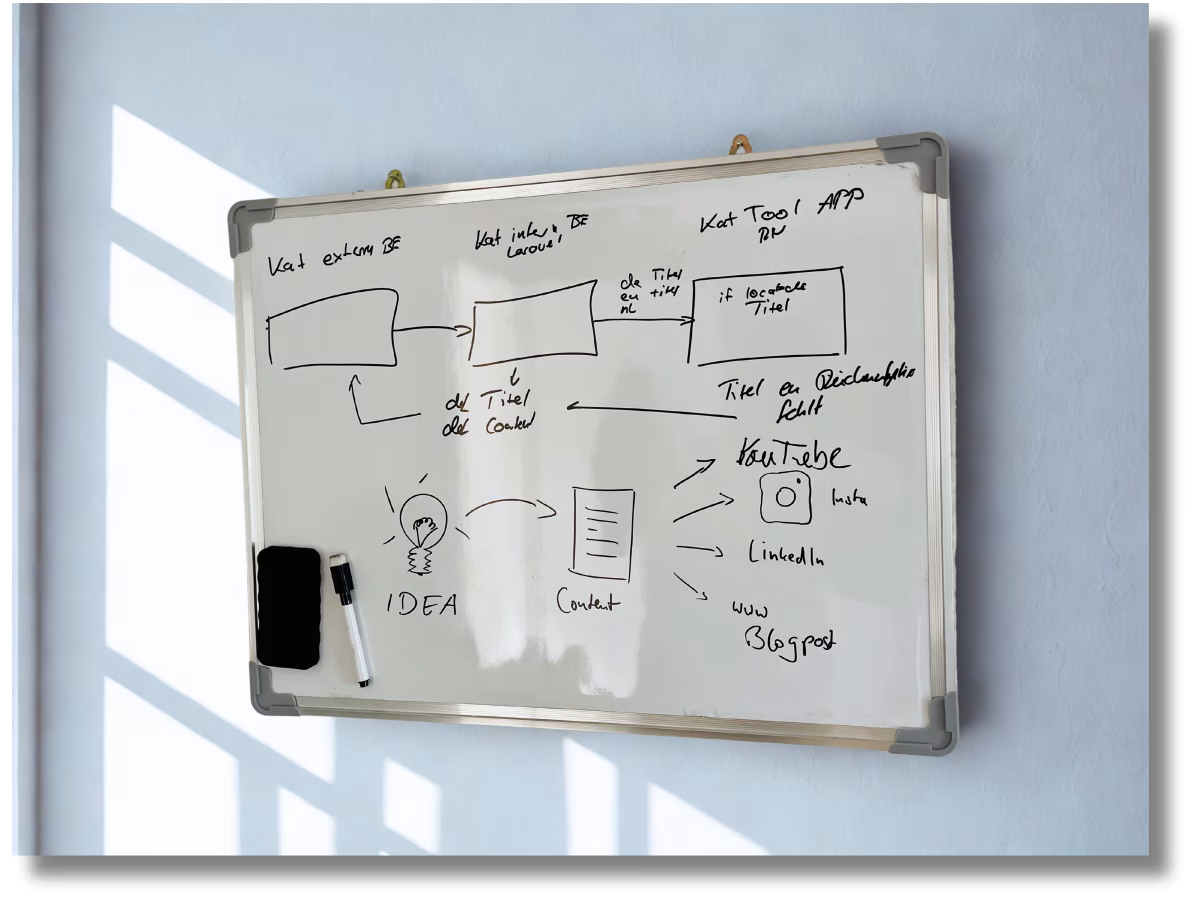 Kat extern BE
Kat intern BE
Laravel
Kat Tool APP
de Titel
en titel
nl
if
Titel
de Titel
de Content
Titel en
fehlt
YouTube
Insta
LinkedIn
www
Blogpost
IDEA
Content